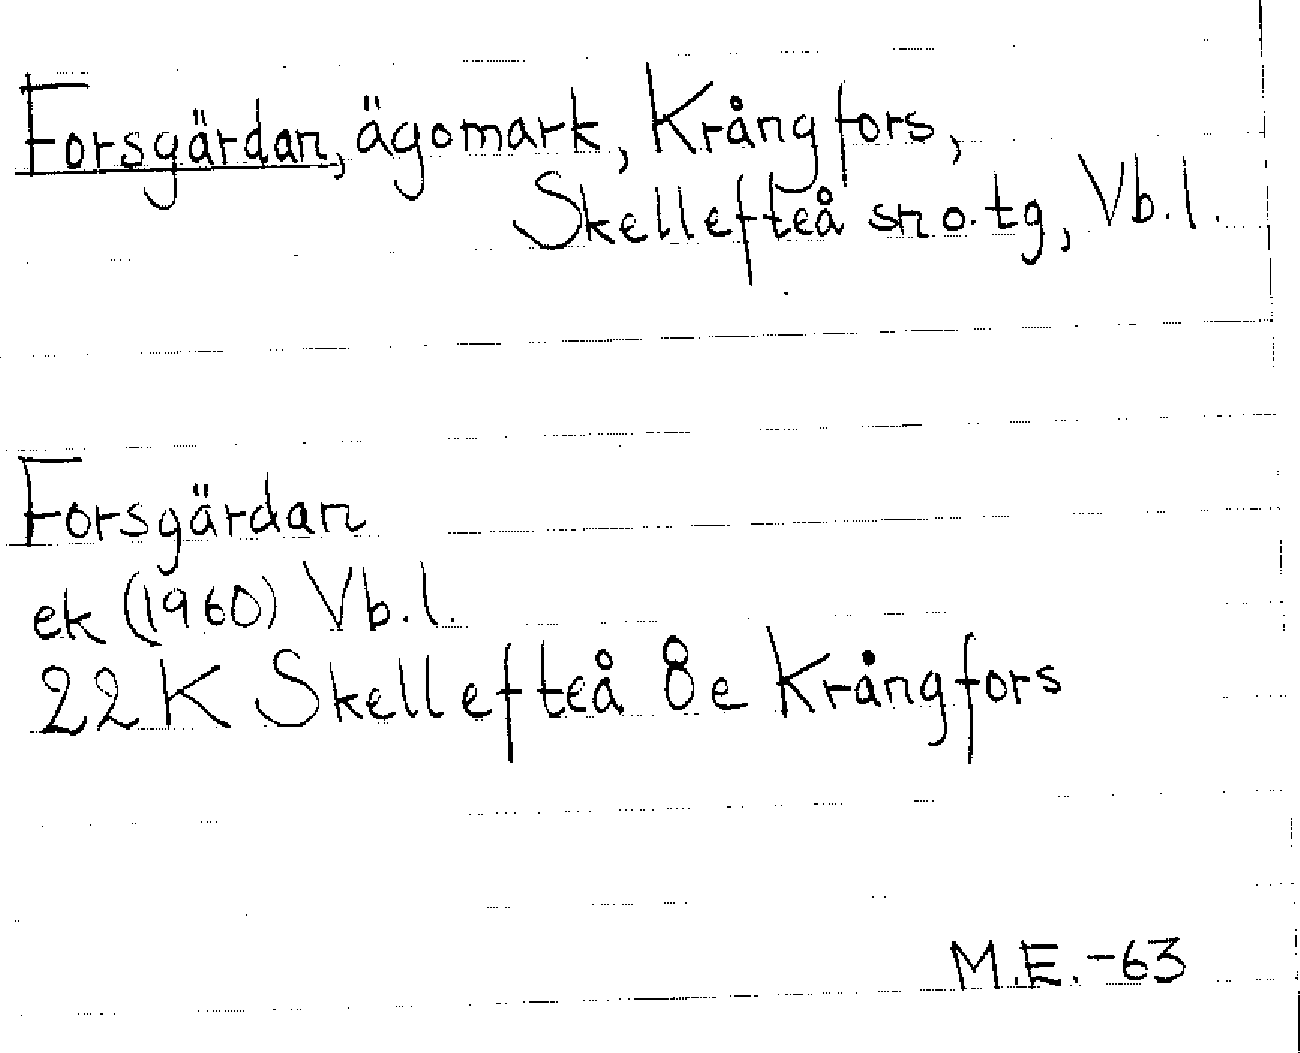 Forsgärdan, ägomark, Krångfors,
Skellefteå sn o. tg, Vb. l.
Forsgärdan
ek (1960) Vb. l.
22 K Skellefteå 8e Krångfors
M.E. -63